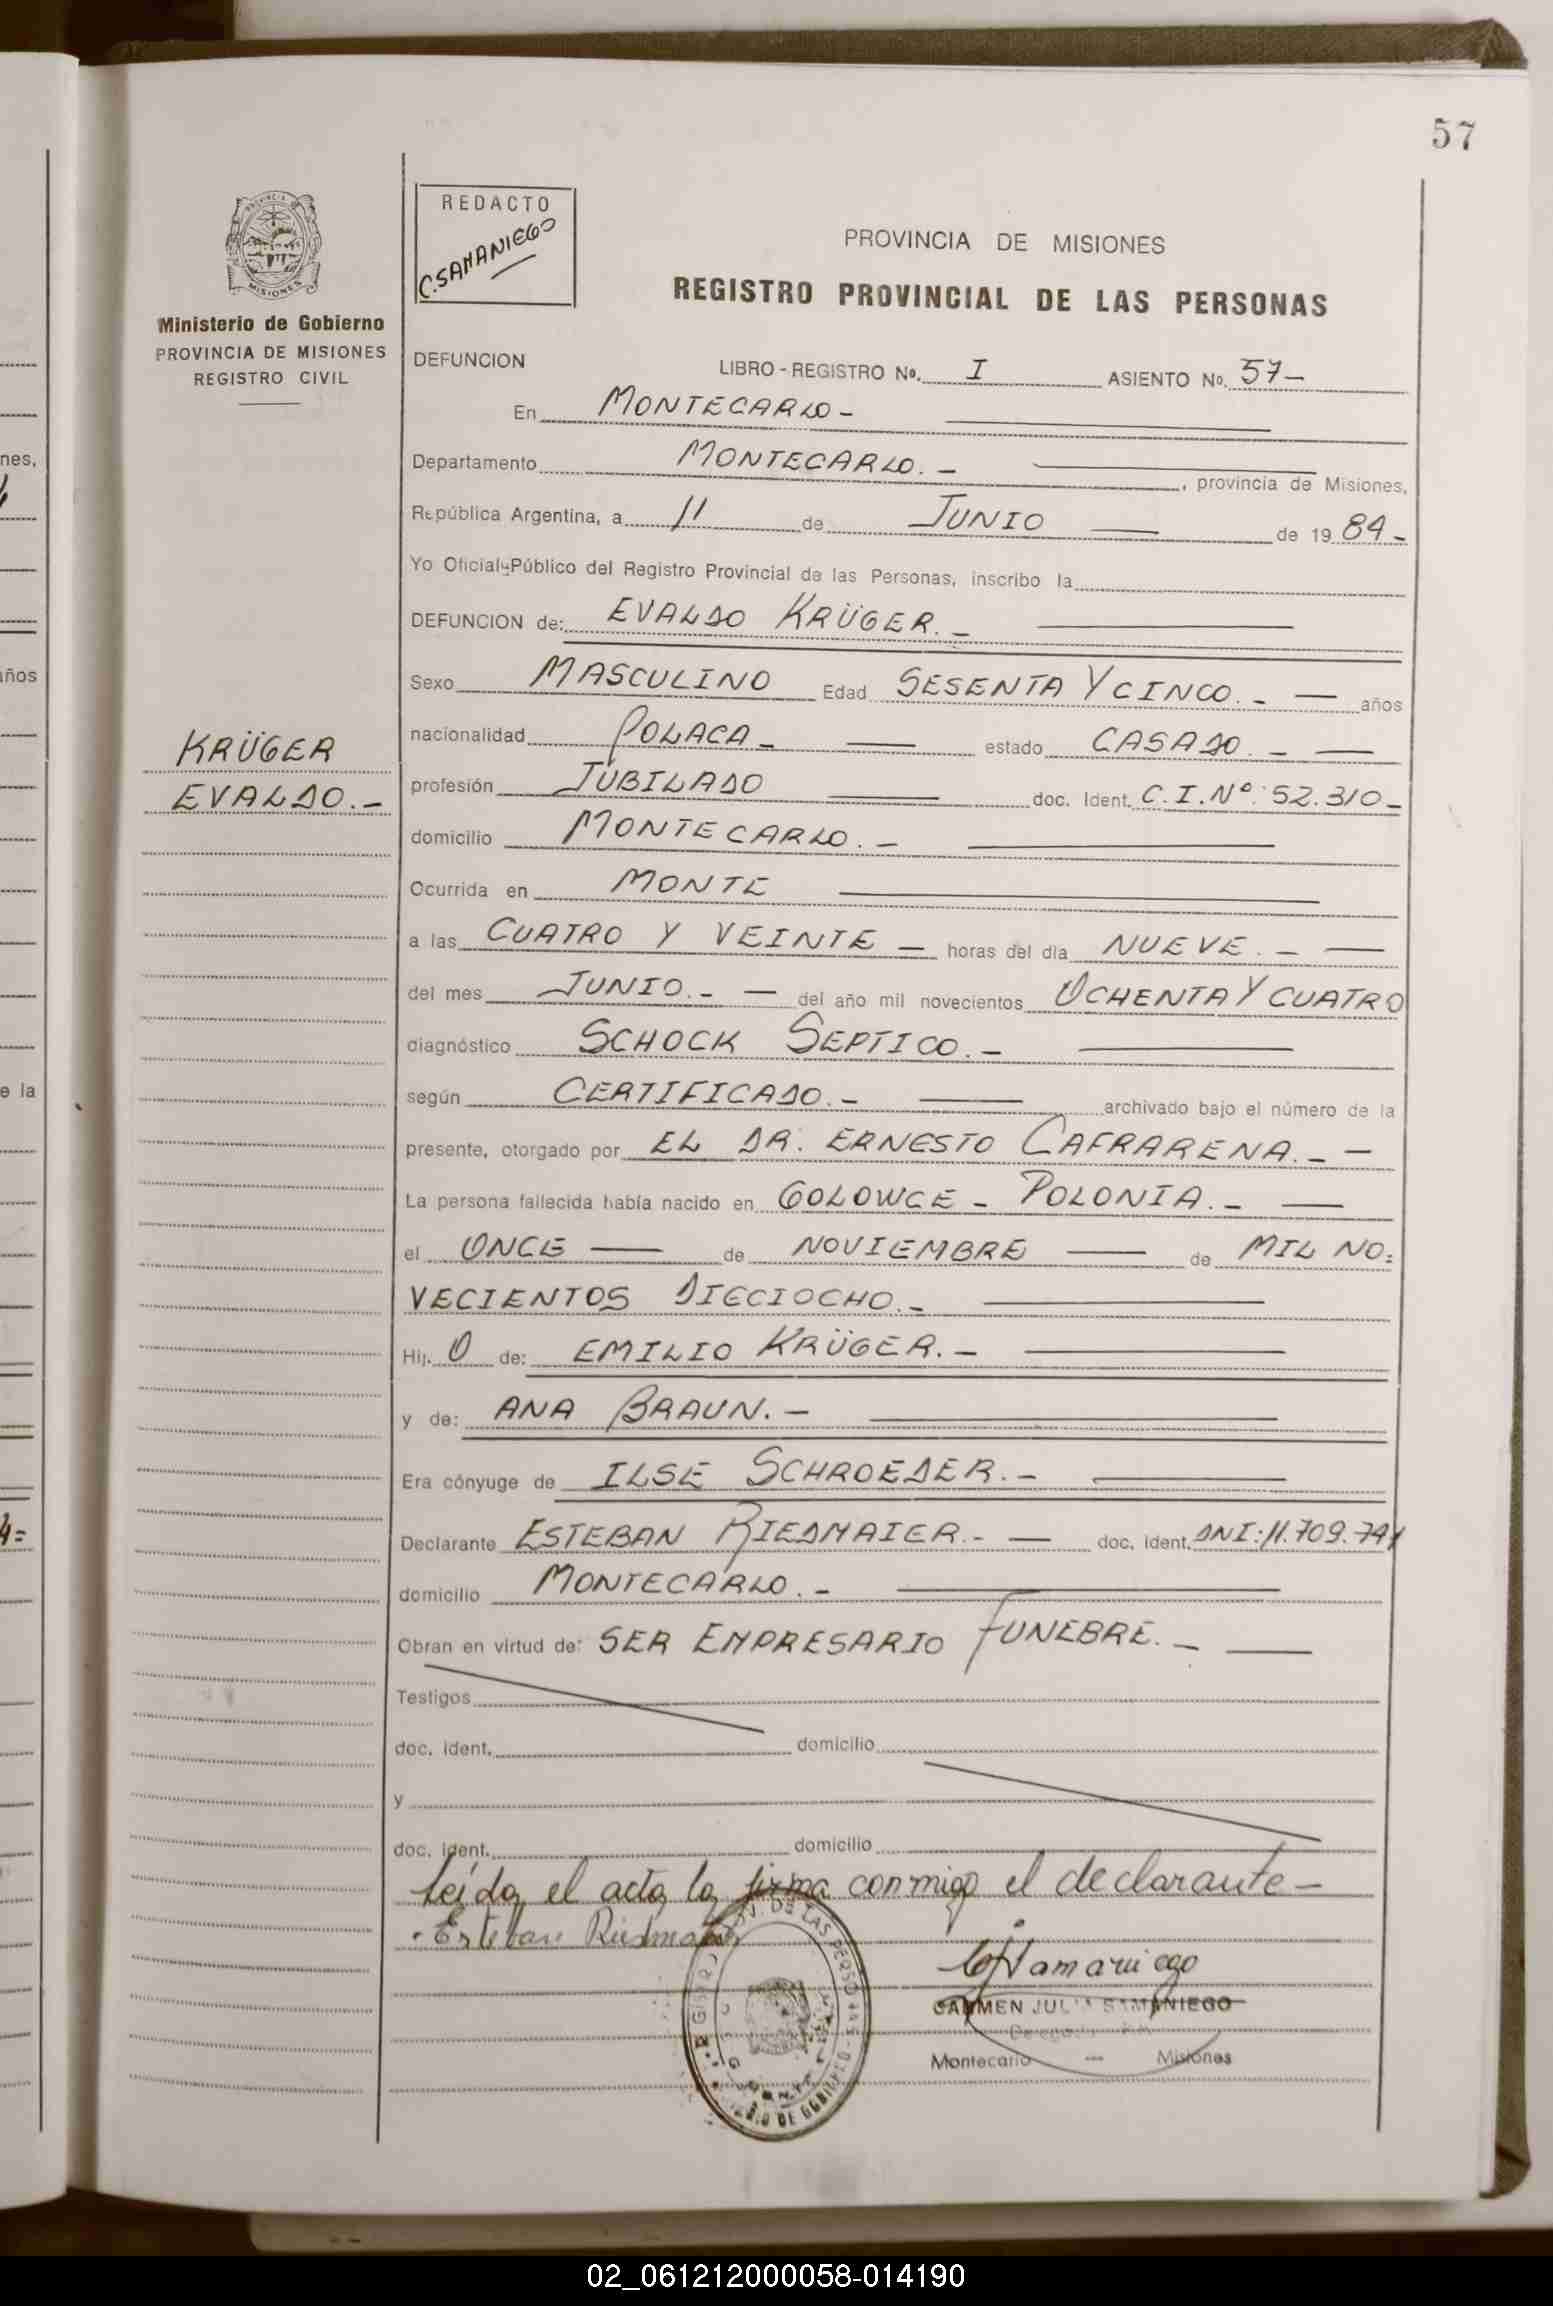 57
REDACTO
C. SAMANIEGO
PROVINCIA DE MISIONES
REGISTRO PROVINCIAL DE LAS PERSONAS
MISIONES
Ministerio de Gobierno
PROVINCIA DE MISIONES
REGISTRO CIVIL
DEFUNCION LIBRO - REGISTRO No. I ASIENTO No. 57-
En MONTECARLO -
Departamento MONTECARLO. - , provincia de Misiones,
República Argentina, a 11 de JUNIO de 19 84 -
Yo Oficial Público del Registro Provincial de las Personas, inscribo la
DEFUNCION de: EVALDO KRÜGER. -
Sexo MASCULINO Edad SESENTA Y CINCO. - años
KRÜGER
EVALDO. -
nacionalidad POLACA - estado CASADO. -
profesión JUBILADO doc. Ident. C.I.Nº: 52.310 -
domicilio MONTECARLO. -
Ocurrida en MONTE
a las CUATRO Y VEINTE - horas del día NUEVE. -
del mes JUNIO. - del año mil novecientos OCHENTA Y CUATRO
diagnóstico SCHOCK SEPTICO. -
según CERTIFICADO. - archivado bajo el número de la
presente, otorgado por EL DR. ERNESTO CAFRARENA. -
La persona fallecida había nacido en GOLOWCE - POLONIA. -
el ONCE de NOVIEMBRE de MIL NO=
VECIENTOS DIECIOCHO. -
Hij. O de: EMILIO KRÜGER. -
y de: ANA BRAUN. -
Era cónyuge de ILSE SCHROEDER. -
Declarante ESTEBAN RIEDMAIER. - doc. ident. DNI: 11.709.741
domicilio MONTECARLO. -
Obran en virtud de: SER EMPRESARIO FUNEBRE. -
Testigos
doc. ident. domicilio
y
doc. ident. domicilio
Leída el acta la firma conmigo el declarante -
Esteban Riedmaier
CJSamaniego
CARMEN JULIA SAMANIEGO
Montecarlo — Misiones
02_061212000058-014190